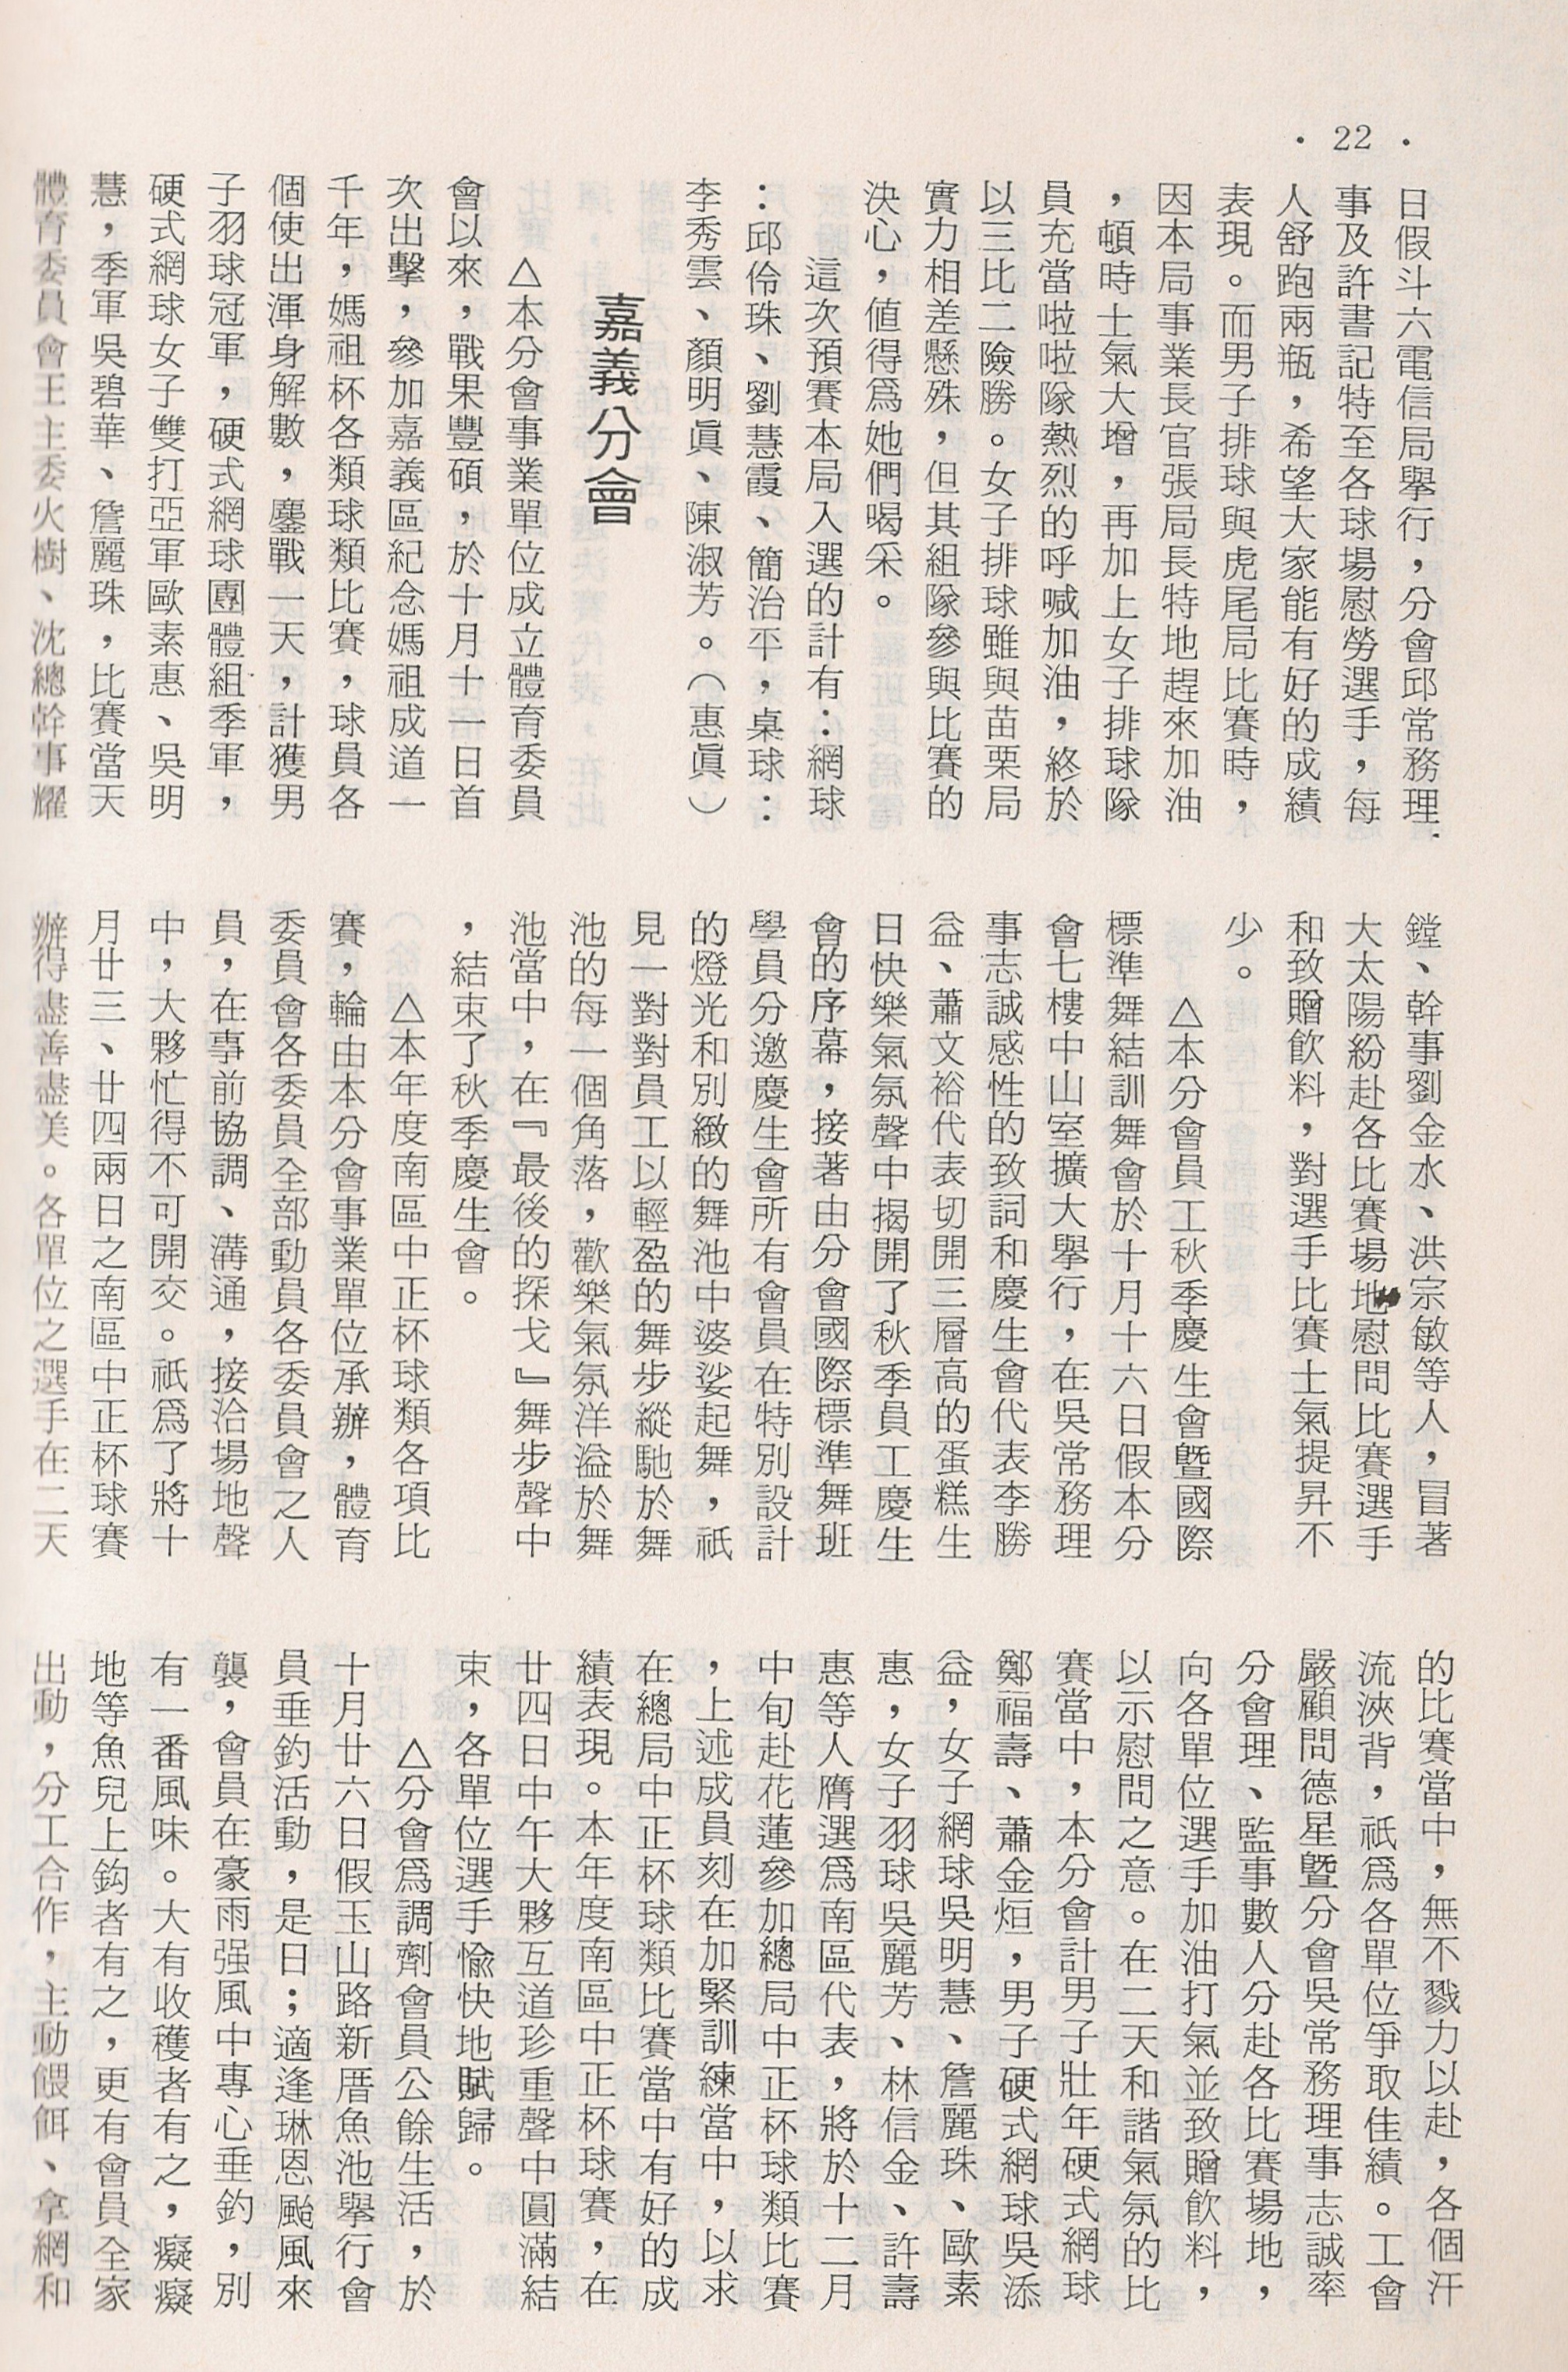 • 22 •
日假斗六電信局舉行，分會邱常務理
事及許書記特至各球場慰勞選手，每
人舒跑兩瓶，希望大家能有好的成績
表現。而男子排球與虎尾局比賽時，
因本局事業長官張局長特地趕來加油
，頓時士氣大增，再加上女子排球隊
員充當啦啦隊熱烈的呼喊加油，終於
以三比二險勝。女子排球雖與苗栗局
實力相差懸殊，但其組隊參與比賽的
決心，值得爲她們喝采。
這次預賽本局入選的計有：網球
：邱伶珠、劉慧霞、簡治平，桌球：
李秀雲、顏明眞、陳淑芳。（惠眞）
嘉義分會
△本分會事業單位成立體育委員
會以來，戰果豐碩，於十月十一日首
次出擊，參加嘉義區紀念媽祖成道一
千年，媽祖杯各類球類比賽，球員各
個使出渾身解數，鏖戰一天，計獲男
子羽球冠軍，硬式網球團體組季軍，
硬式網球女子雙打亞軍歐素惠、吳明
慧，季軍吳碧華、詹麗珠，比賽當天
體育委員會王主委火樹、沈總幹事耀
鏜、幹事劉金水、洪宗敏等人，冒著
大太陽紛赴各比賽場地慰問比賽選手
和致贈飲料，對選手比賽士氣提昇不
少。
△本分會員工秋季慶生會暨國際
標準舞結訓舞會於十月十六日假本分
會七樓中山室擴大舉行，在吳常務理
事志誠感性的致詞和慶生會代表李勝
益、蕭文裕代表切開三層高的蛋糕生
日快樂氣氛聲中揭開了秋季員工慶生
會的序幕，接著由分會國際標準舞班
學員分邀慶生會所有會員在特別設計
的燈光和別緻的舞池中婆娑起舞，祇
見一對對員工以輕盈的舞步縱馳於舞
池的每一個角落，歡樂氣氛洋溢於舞
池當中，在『最後的探戈』舞步聲中
，結束了秋季慶生會。
△本年度南區中正杯球類各項比
賽，輪由本分會事業單位承辦，體育
委員會各委員全部動員各委員會之人
員，在事前協調、溝通，接洽場地聲
中，大夥忙得不可開交。祇爲了將十
月廿三、廿四兩日之南區中正杯球賽
辦得盡善盡美。各單位之選手在二天
的比賽當中，無不戮力以赴，各個汗
流浹背，祇爲各單位爭取佳績。工會
嚴顧問德星暨分會吳常務理事志誠率
分會理、監事數人分赴各比賽場地，
向各單位選手加油打氣並致贈飲料，
以示慰問之意。在二天和諧氣氛的比
賽當中，本分會計男子壯年硬式網球
鄭福壽、蕭金烜，男子硬式網球吳添
益，女子網球吳明慧、詹麗珠、歐素
惠，女子羽球吳麗芳、林信金、許壽
惠等人膺選爲南區代表，將於十二月
中旬赴花蓮參加總局中正杯球類比賽
，上述成員刻在加緊訓練當中，以求
在總局中正杯球類比賽當中有好的成
績表現。本年度南區中正杯球賽，在
廿四日中午大夥互道珍重聲中圓滿結
束，各單位選手愉快地賦歸。
△分會爲調劑會員公餘生活，於
十月廿六日假玉山路新厝魚池舉行會
員垂釣活動，是日；適逢琳恩颱風來
襲，會員在豪雨强風中專心垂釣，別
有一番風味。大有收穫者有之，癡癡
地等魚兒上鈎者有之，更有會員全家
出動，分工合作，主動餵餌、拿網和